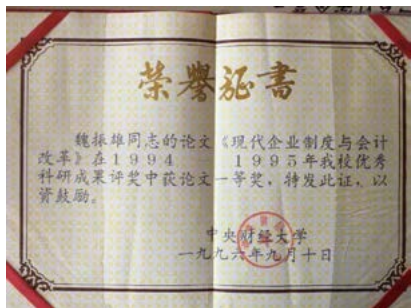 荣誉证书
魏振雄同志的论文《现代企业制度与会计
改革》在1994 1995年我校优秀
科研成果评奖中获论文一等奖，特发此证，以
资鼓励。
中央财经大学
一九九六年九月十日